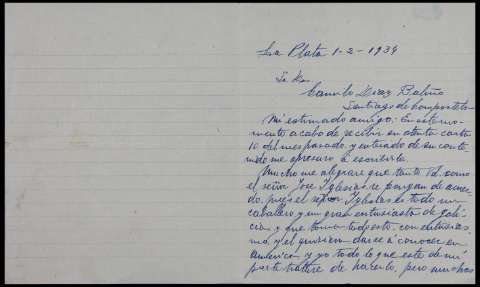 La Plata 1-2-1934
Camilo Diaz Baliño
Santiago de Compostela
Mi estimado amigo: En este mo-
mento acabo de recibir su atenta carta
10 del mes pasado, y enterado de su conte-
nido me apresuro a escribirle.
Mucho me alegrare que tanto Vd. como
el señor José Iglesias se pongan de acuer-
do, pues el señor Iglesias es todo un
caballero y un gran entusiasta de Gali-
cia, y que toma todo esto, con entusias-
mo, y el quisiera darse á conocer en
America, y yo todo lo que este de mi
parte tratare de hacerlo, pero muchas